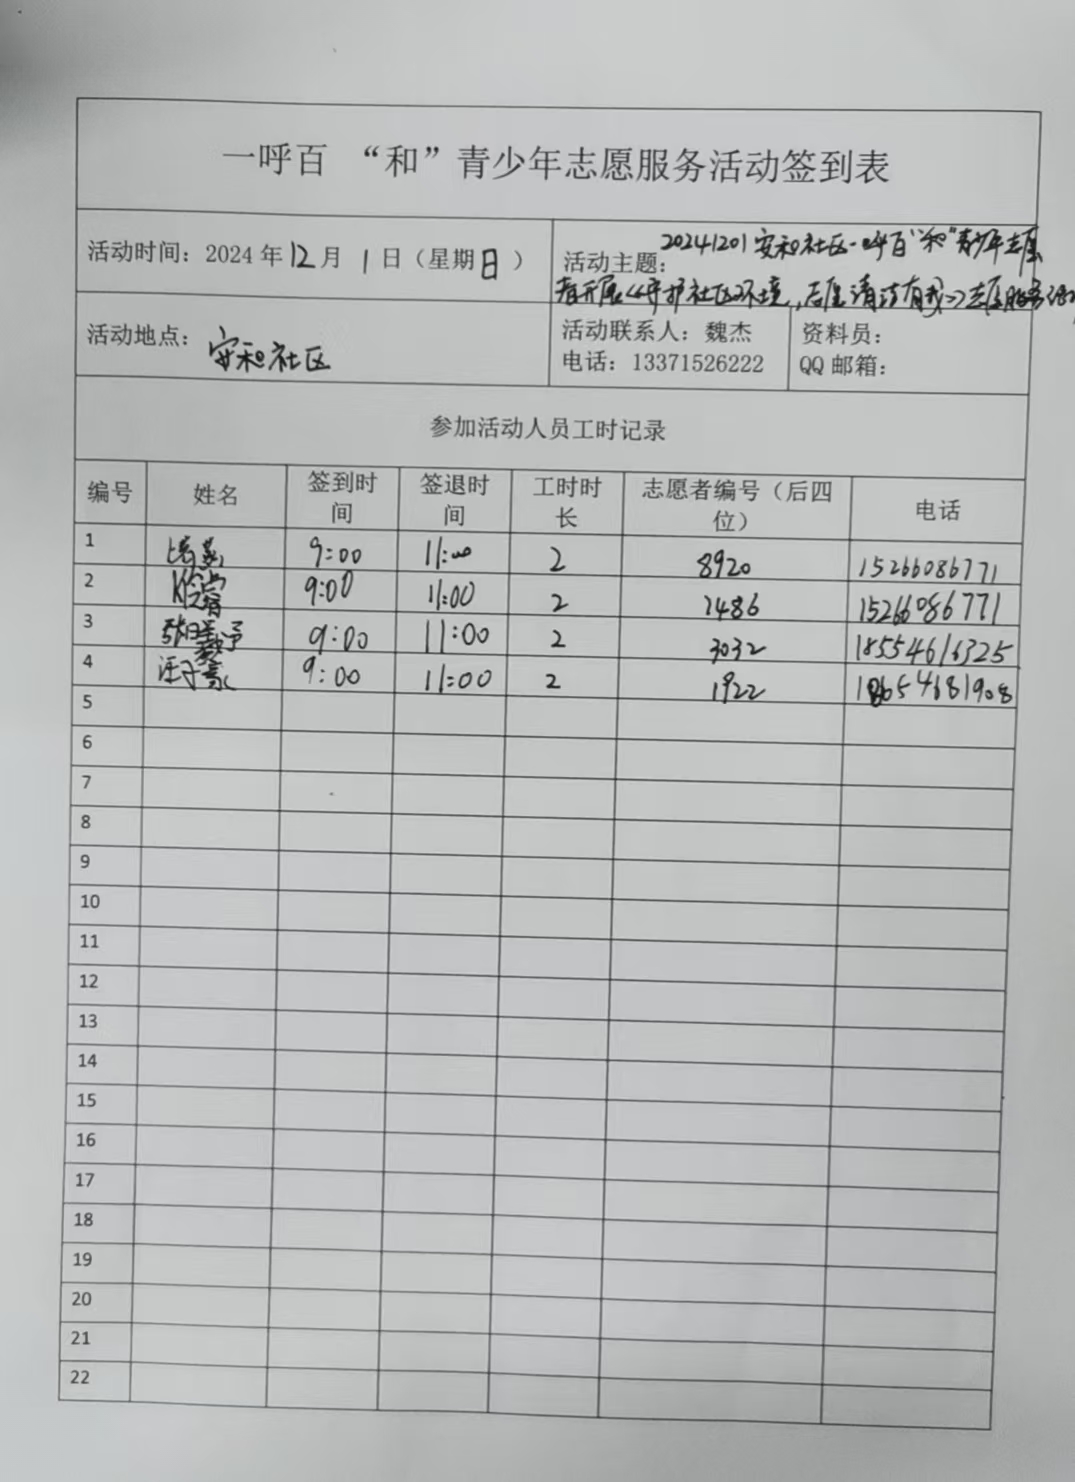 一呼百 “和”青少年志愿服务活动签到表
活动时间：2024年12月1日（星期日）
活动主题：20241201安和社区一呼百“和”青少年志愿
者开展《守护社区环境，志愿清洁有我》志愿服务活动
活动地点：安和社区
活动联系人：魏杰
电话：13371526222
资料员：
QQ邮箱：
参加活动人员工时记录
编号 姓名 签到时间 签退时间 工时时长 志愿者编号（后四位） 电话
1 9:00 11:00 2 8920 15266086771
2 9:00 11:00 2 1486 15266086771
3 9:00 11:00 2 3032 18554616325
4 汪子豪 9:00 11:00 2 1922 18654681908
5
6
7
8
9
10
11
12
13
14
15
16
17
18
19
20
21
22